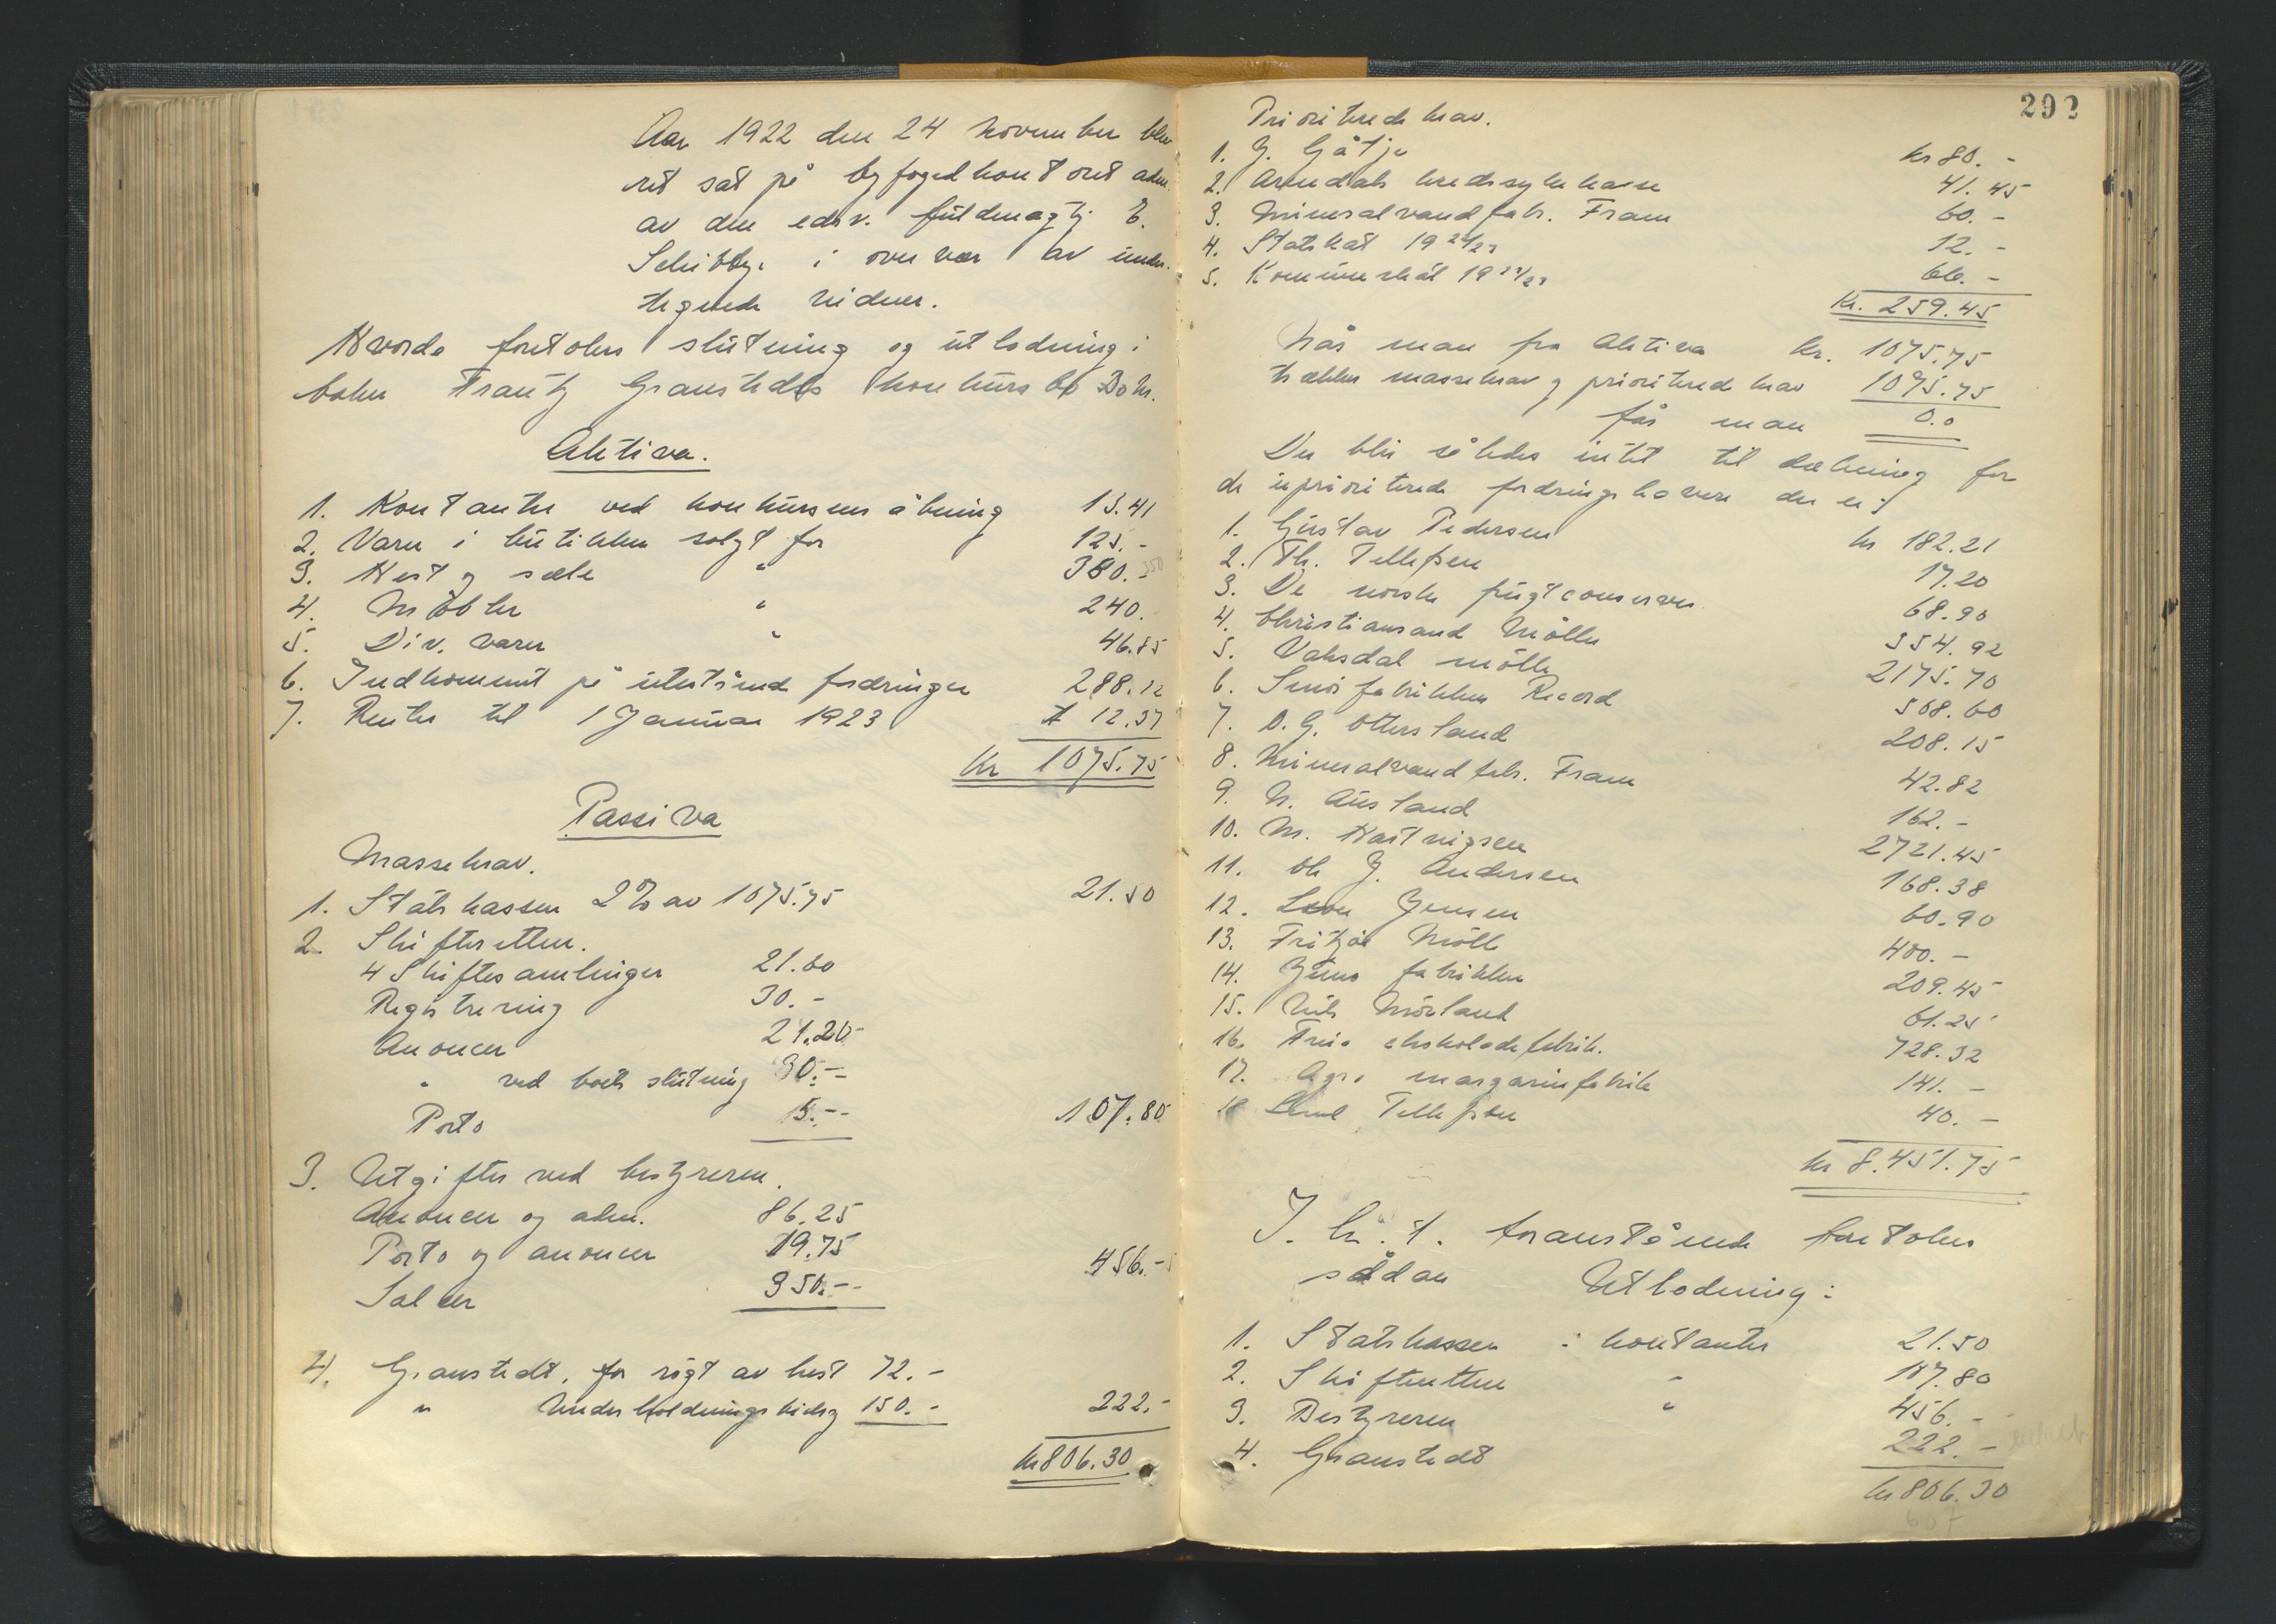 Aar 1922 den 24 november blev
ret sat på byfogedkontoret adm.
av den edsv. fuldmægtig E.
Schibbye i overvær av under-
tegnede vidner.
Hvorda foretokes slutning og utlodning i
boken Frantz Granstedts konkursbo
Aktiva.
1. Kontanter ved konkursens åbning 13.41
2. Varer i butikken solgt for 125.-
3. Hest og sæle " 380.-
4. Möbler " 240.-
5. Div. varer " 46.85
6. Indkommet på utestående fordringer 288.12
7. Renter til 1 Januar 1923 12.37
kr 1075.75
Passiva
Massekrav.
1. Statskassen 2% av 1075.75 21.50
2. Skifteretten.
4 Skiftesamlinger 21.60
Registrering 30.-
Anoncer 21.20
" ved boets slutning 30.-
Porto 5.- 107.80
3. Utgifter ved bestyreren.
Anoncer og adm. 86.25
Porto og anoncer 19.75
Salær 350.- 456.-
4. Granstedt, for røgt av hest 72.-
" Underholdningsbidrag 150.- 222.-
kr 806.30
292
Prioriterede krav.
1. J. Gåtje kr 80.-
2. Arendals kredssykekasse 41.45
3. Mineralvandfabr. Fram 60.-
4. Statskat 1922/23 12.-
5. Kommuneskat 1922/23 66.-
Kr. 259.45
Når man fra Aktiva kr. 1075.75
trækker massekrav og prioriterede krav 1075.75
får man 0.0
Der blir således intet til dækning for
de uprioriterede fordringshavere der er:
1. Gustav Pedersen kr 182.21
2. Th. Tellefsen 17.20
3. De norske frugtconserves 68.90
4. Christiansand Mölle 554.92
5. Vaksdal mölle 2175.70
6. Smörfabrikken Record 508.60
7. O. G. Ottersland 208.15
8. Mineralvandfabr. Fram 42.82
9. N. Ausland 162.-
10. M. Hartvigsen 2721.45
11. Chr J. Andersen 168.38
12. Leon Jensen 60.90
13. Fritzöe Mölle 400.-
14. Juno fabrikken 209.45
15. Nils Mörland 61.25
16. Freia chokoladefabrik. 728.32
17. Agra margarinfabrik 141.-
18 Tellefsen 40.-
kr 8.451.75
I h. t. foranstående foretokes
sådan Utlodning:
1. Statskassen i kontanter 21.50
2. Skifteretten " 107.80
3. Bestyreren " 456.-
4. Granstedt 222.-
kr 806.30